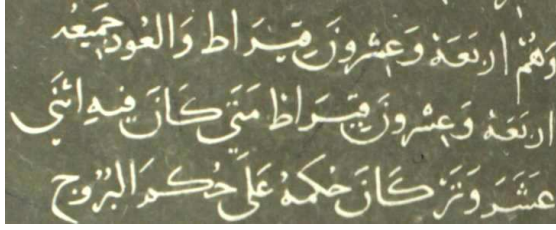 وَهُمْ اربَعَة وَعِشرونَ قِيَراط وَالعُود جَمِيعُه
اربَعَه وَعِشرونَ قِيَراط مَتَى كَانَ فِيهِ اثنَى
عَشَرَ وَتَرْ كَانَ حُكمَهُ عَلَى حُكمَ البُرُوج